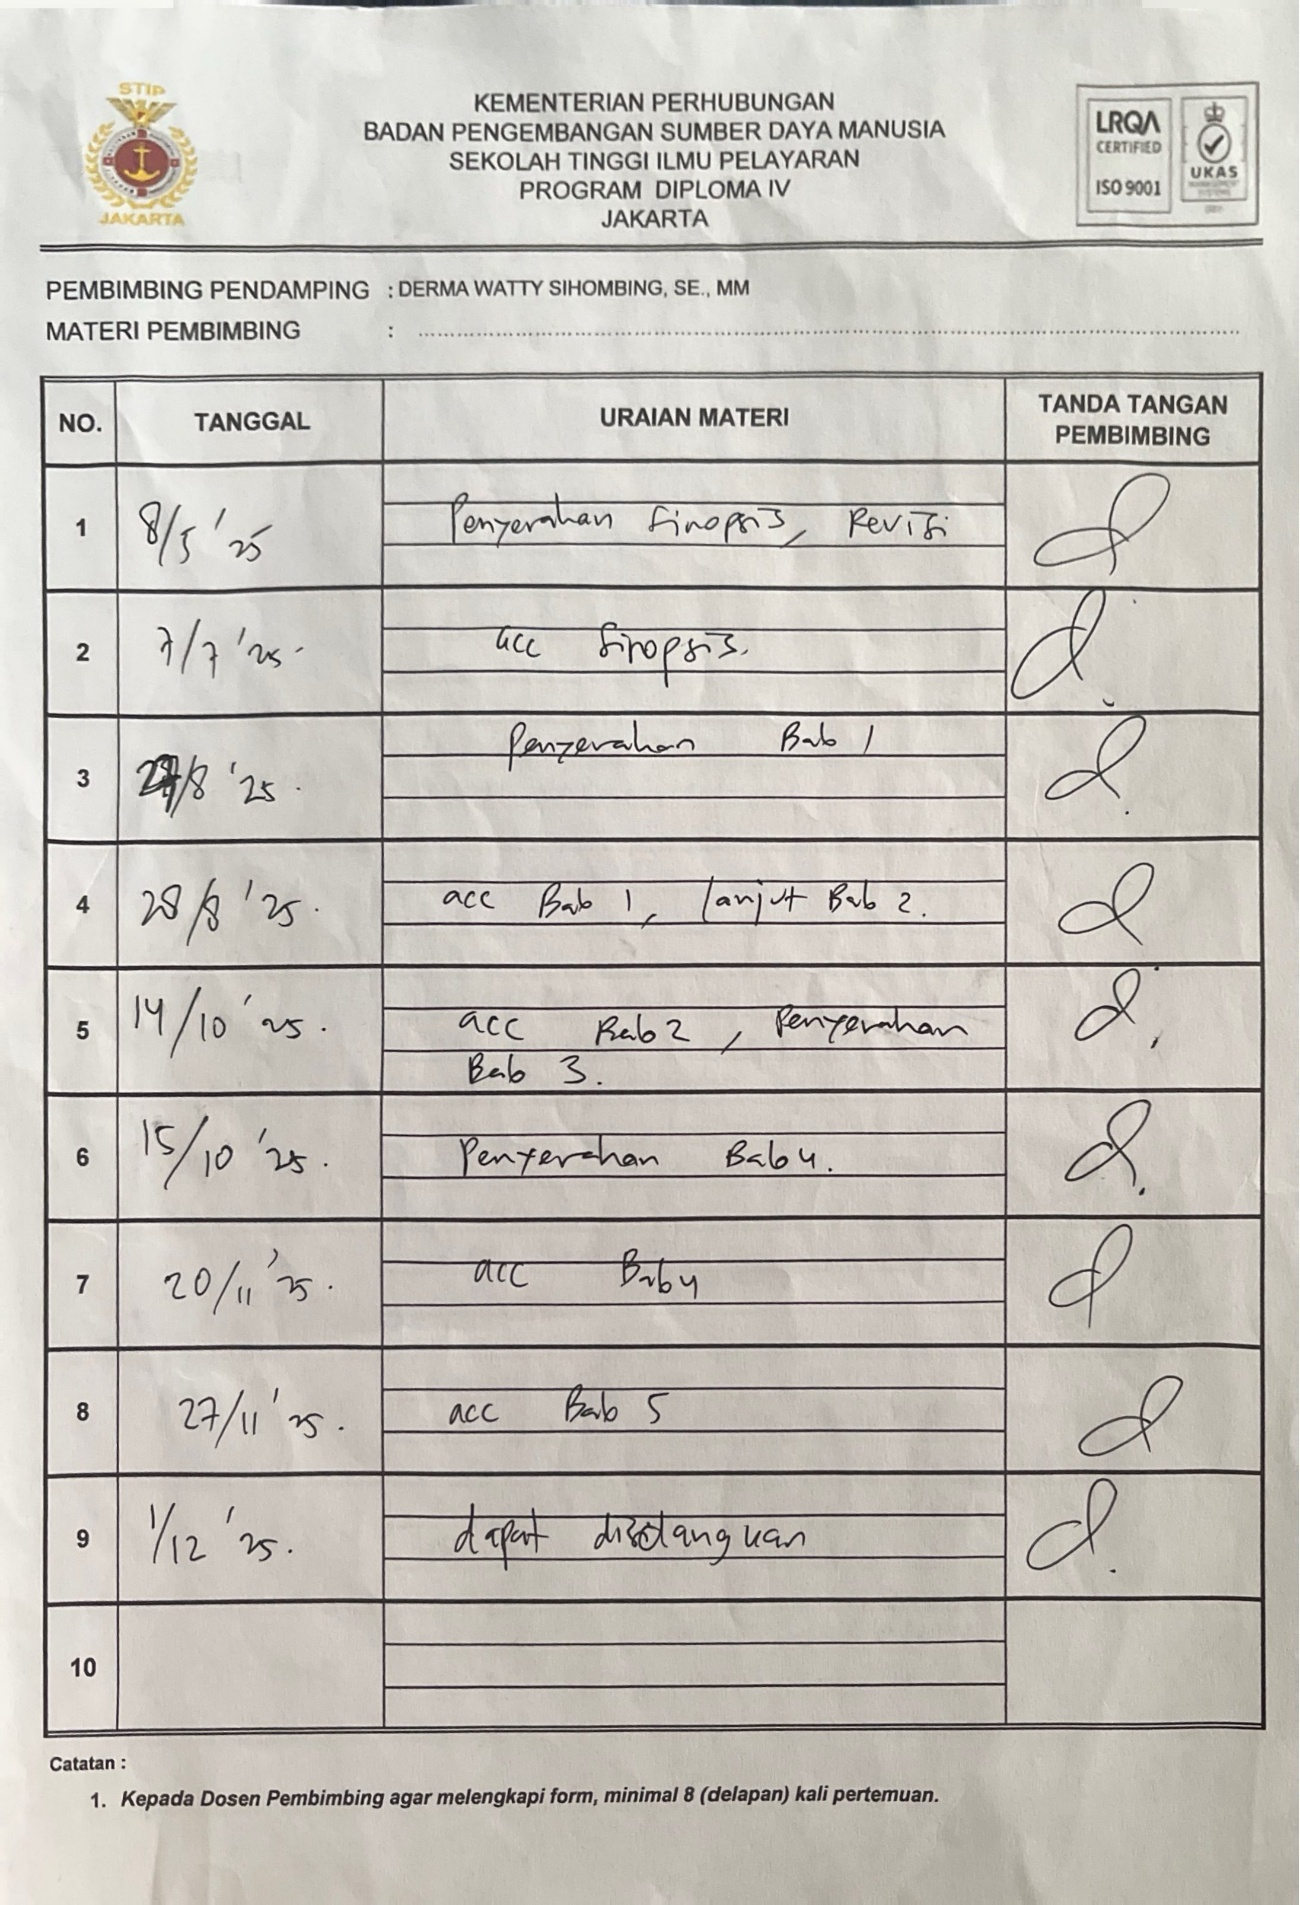 STIP
JAKARTA
KEMENTERIAN PERHUBUNGAN
BADAN PENGEMBANGAN SUMBER DAYA MANUSIA
SEKOLAH TINGGI ILMU PELAYARAN
PROGRAM DIPLOMA IV
JAKARTA
LRQA
CERTIFIED
ISO 9001
UKAS
MANAGEMENT
SYSTEMS
PEMBIMBING PENDAMPING : DERMA WATTY SIHOMBING, SE., MM
MATERI PEMBIMBING :
NO. TANGGAL URAIAN MATERI TANDA TANGAN
PEMBIMBING
1 8/5 '25 Penyerahan Sinopsis, Revisi
2 7/7 '25. acc Sinopsis.
3 /8 '25. Penyerahan Bab 1
4 28/8 '25. acc Bab 1, lanjut Bab 2.
5 14/10 '25. acc Bab 2, Penyerahan
Bab 3.
6 15/10 '25. Penyerahan Bab 4.
7 20/11 '25. acc Bab 4
8 27/11 '25. acc Bab 5
9 1/12 '25. dapat
10
Catatan :
1. Kepada Dosen Pembimbing agar melengkapi form, minimal 8 (delapan) kali pertemuan.